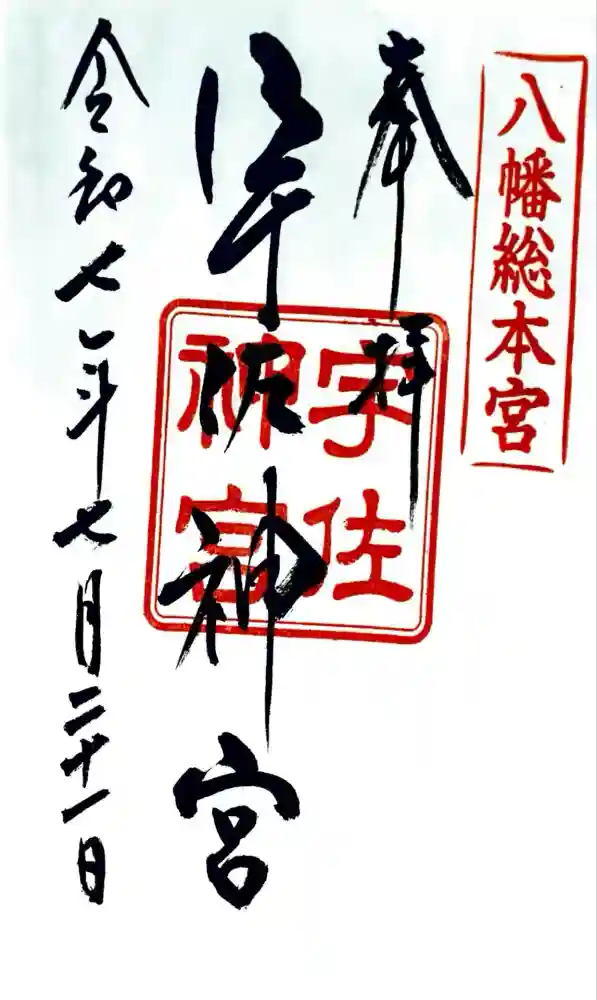 八幡総本宮
奉拝
宇佐神宮
宇佐神宮
令和七年七月二十一日